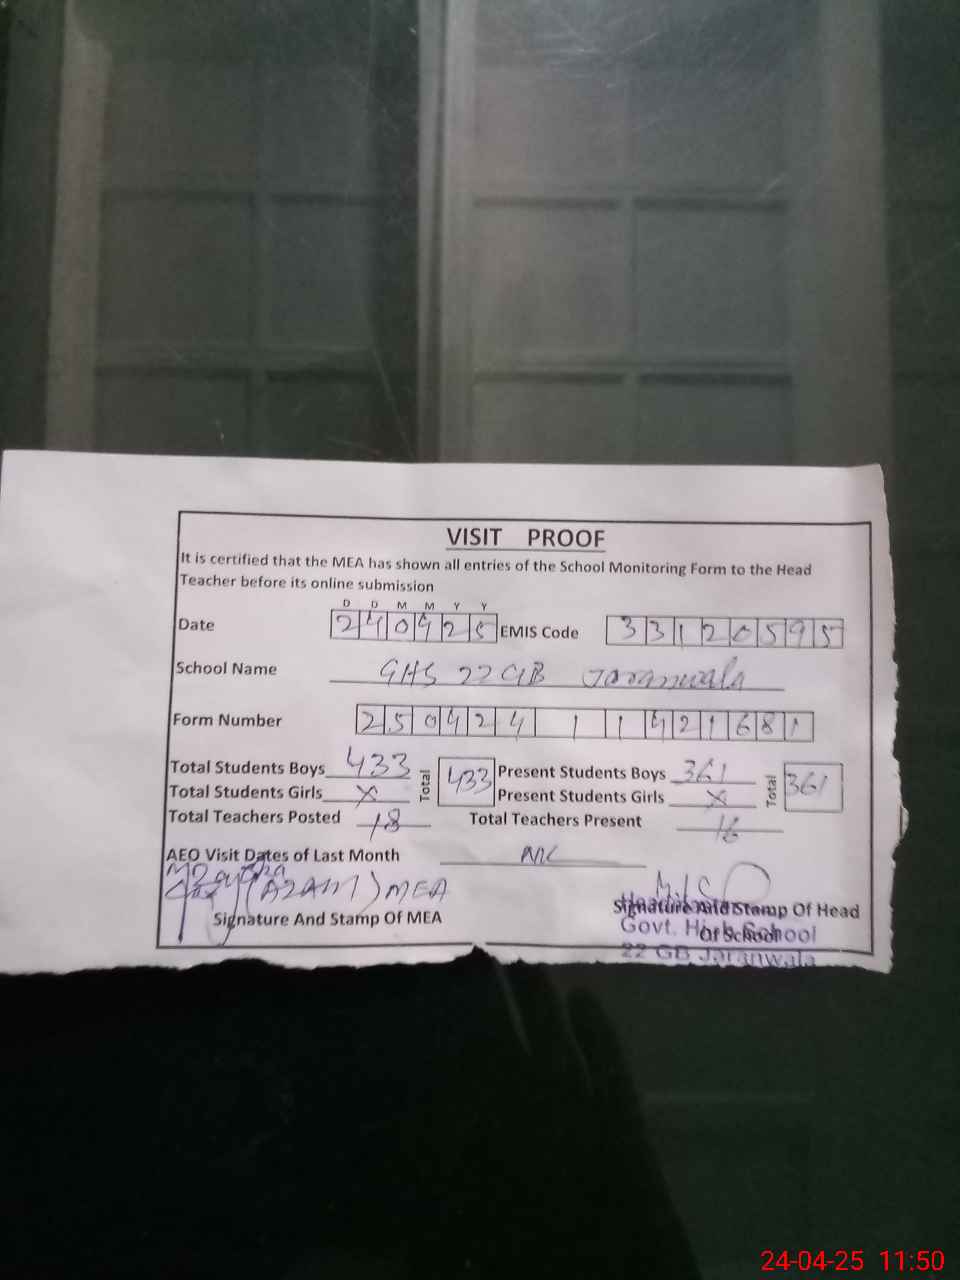 VISIT PROOF
It is certified that the MEA has shown all entries of the School Monitoring Form to the Head
Teacher before its online submission
D D M M Y Y
Date 240425 EMIS Code 33120595
School Name GHS 22 GB Jaranwala
Form Number 250424 1 1421681
Total Students Boys 433 Total 433 Present Students Boys 361 Total 361
Total Students Girls X Present Students Girls X
Total Teachers Posted 18 Total Teachers Present 16
AEO Visit Dates of Last Month
(AZAM) MEA
Signature And Stamp Of MEA
Signature And Stamp Of Head
Of School
Govt. High School
22 GB Jaranwala
24-04-25 11:50